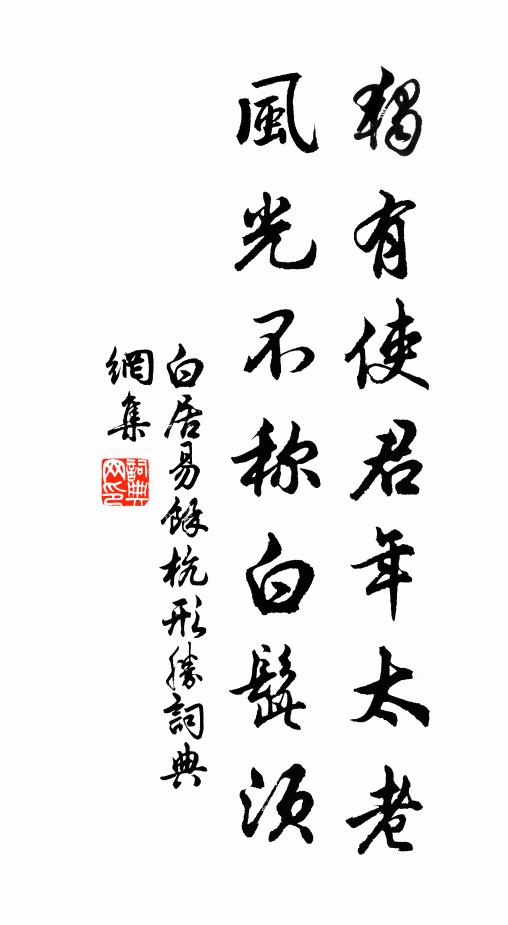 獨有使君年太老
風光不称白髭須
白居易餘杭形勝詞典
網集
詞典網印